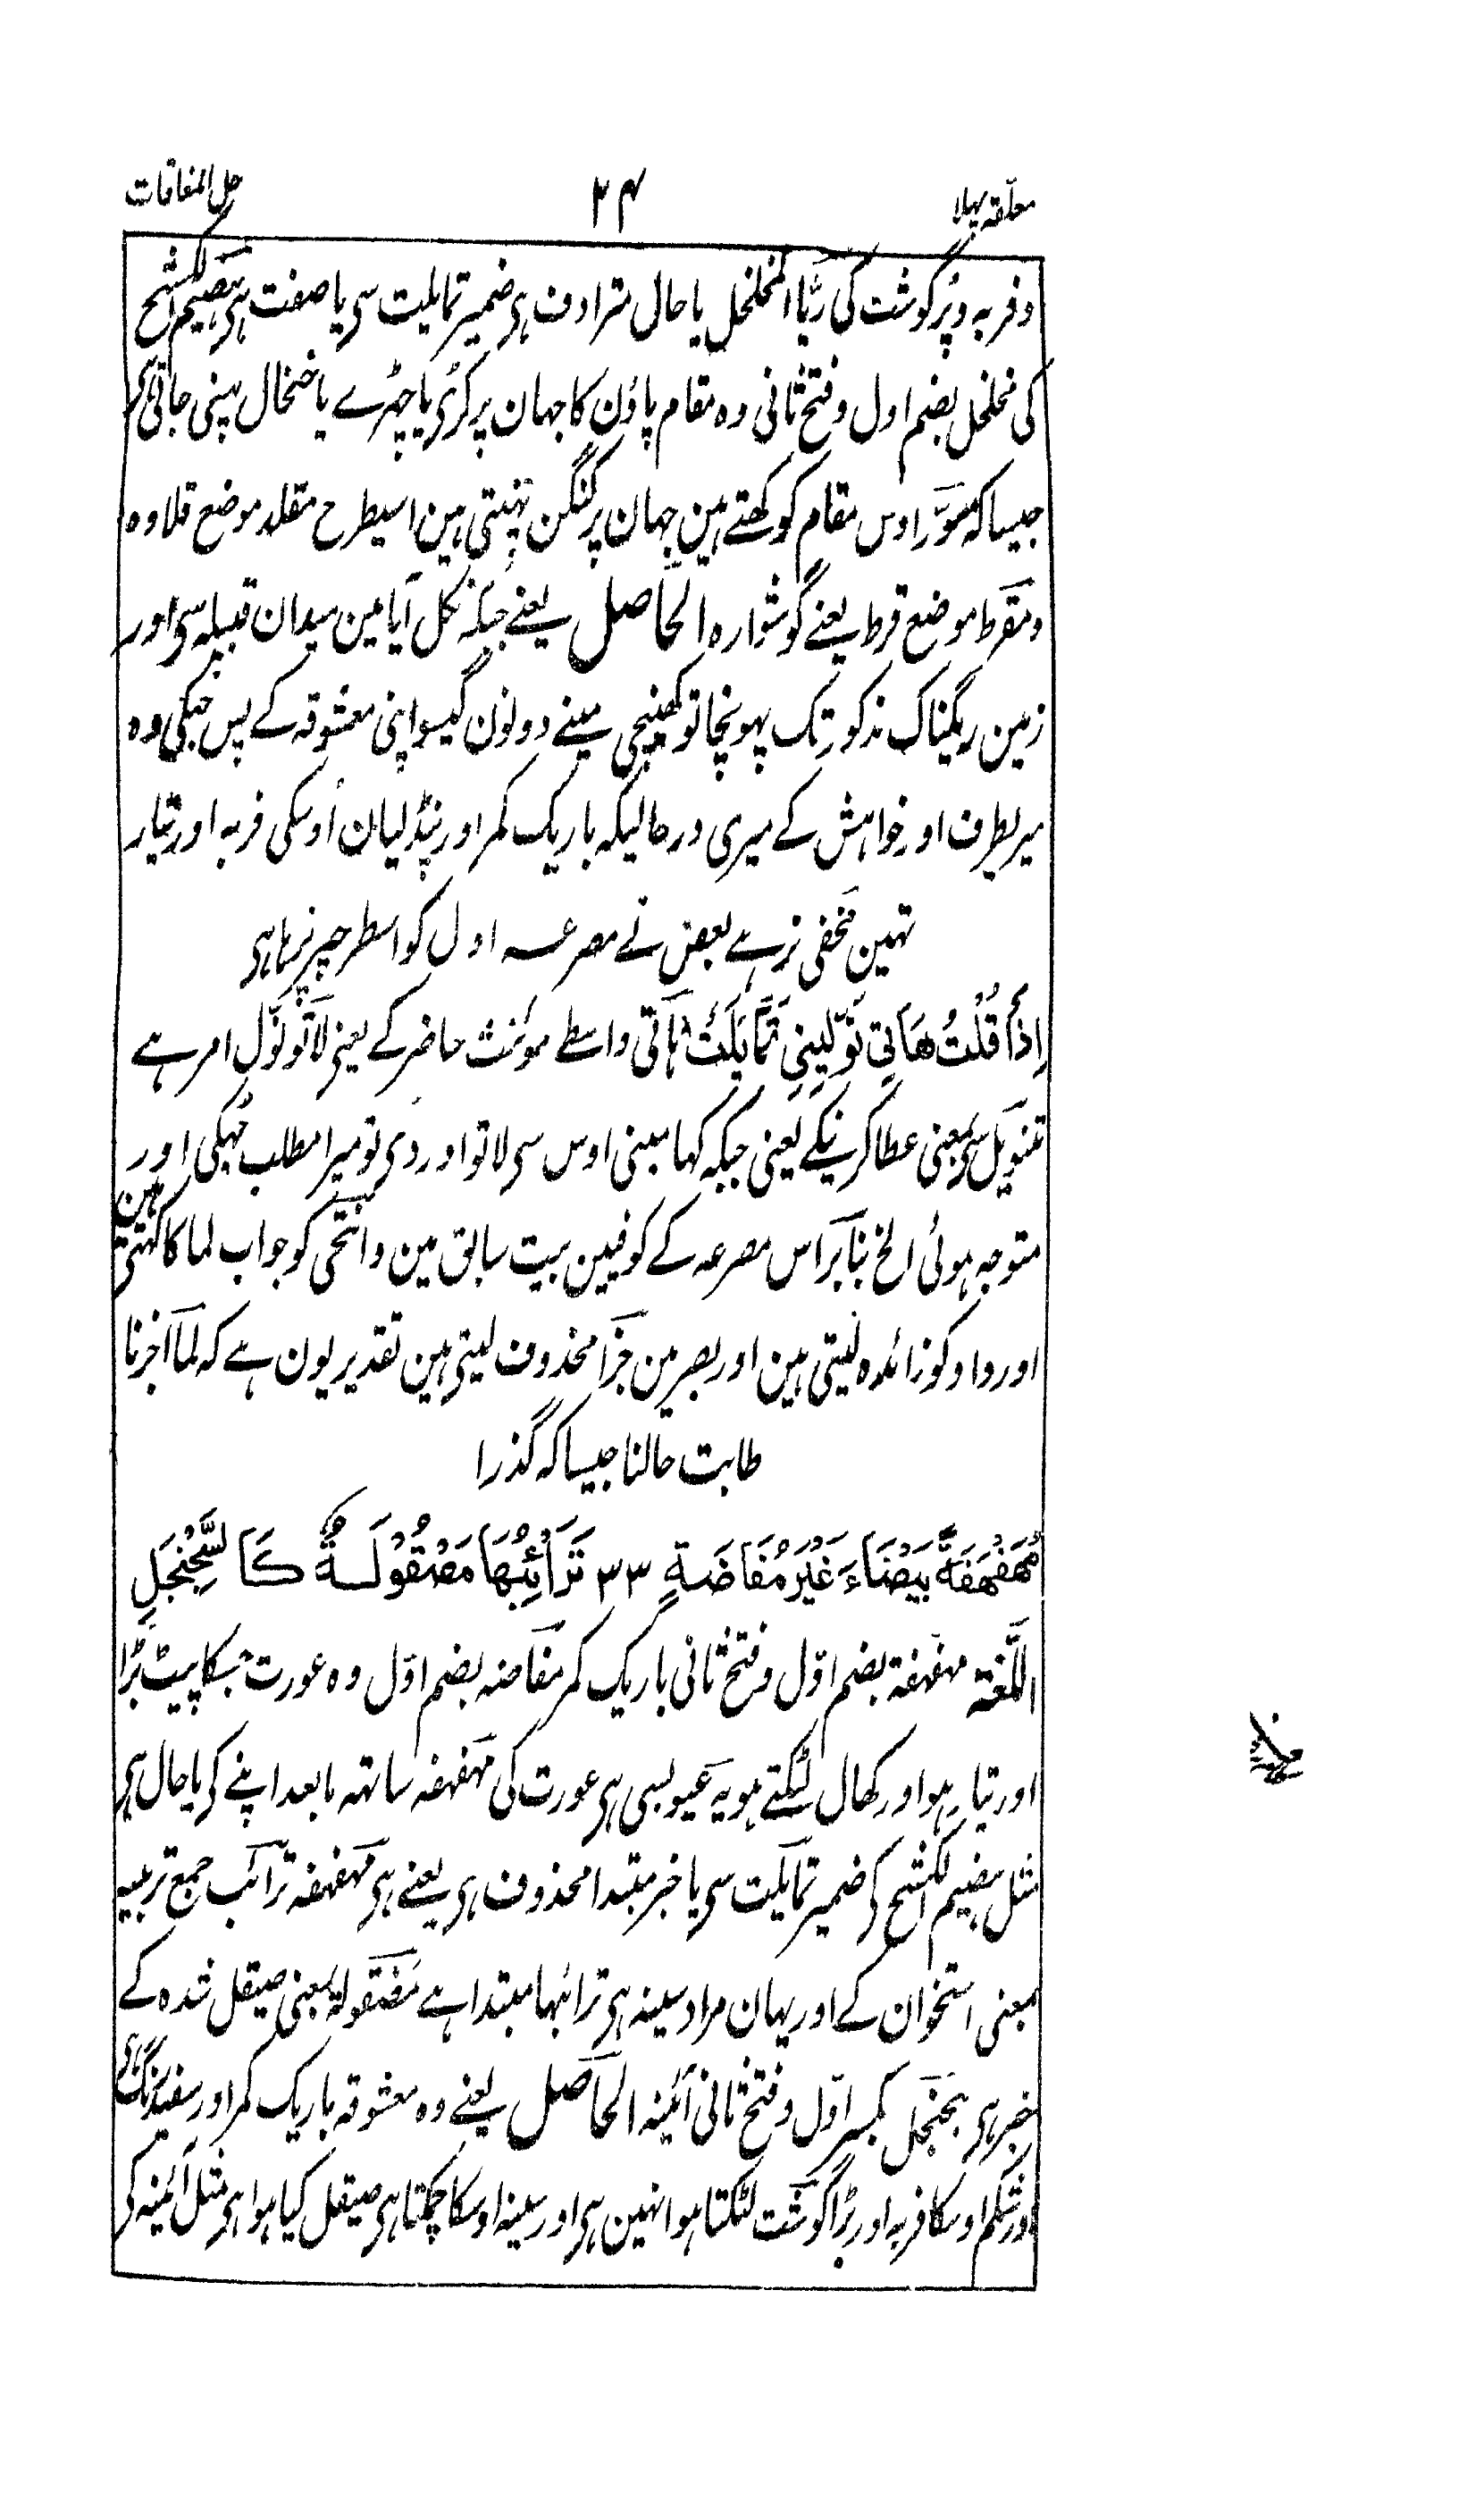 معلقہ پہلا
۲۴
حل المغلقات
وفربہ وپُر گوشت کی ریّا المخلخل یا حال مترادف ہی ضمیر تمایلیت سی یا صفت ہی ہضیم الکشح
کی مخلخل بضم اول وفتح ثانی وہ مقام پاؤن کا جہان پر کڑی یا چہڑے یا خلخال پہنی جاتی ہی
جیسا کہ مسوّر اوس مقام کو کہتے ہین جہان پر کنگن پہنتی ہین اسیطرح مقلد موضع قلاوہ
ومقرط موضع قرط یعنے گوشوارہ الحاصل یعنے جبکہ نکل آیا مین میدان قبیلہ سی اور
زمین ریگناک مذکور تک پہونچا تو کھینچی مینے دونون گیسو اپنی معشوقہ کے پس جہکی وہ
میریطرف اور خواہش کے میری درحالیکہ باریک کمر اور پنڈلیان اوسکی فربہ اور تیار
تہین مخفی نرہے بعض نے مصرعہ اول کو اسطرحپر پڑہا ہی
اِذَا قُلْتُ هَاتِي نَوِّلِيْنِي تَمَايَلَتْ ہاتی واسطے موئنث حاضر کے یعنی لا تو نوّل امر ہے
تنویل سی بمعنی عطا کرنیکے یعنی جبکہ کہا مینی اوس سی لا تو اور دی تو میرا مطلب جہکی اور
متوجہ ہوئی الخ بنا بر اس مصرعہ کے کوفیین بیت سابق مین وانتحی کو جواب لما کا کہتی ہین
اور واو کو زائدہ لیتی ہین اور بصرمین جزا محذوف لیتی ہین تقدیر یون ہے کہ لما آجزنا
طابت حالنا جیسا کہ گذرا
مُهَفْهَفَةٌ بَيْضَاءَ غَيْرَ مُفَاضَةٍ ۳۳ تَرَائِبُهَا مَصْقُوْلَةٌ كَالسَّجَنْجَلِ
اللّغۃ مہفہفۃ بضم اوّل وفتح ثانی باریک کمر مفاضہ بضم اوّل وہ عورت جسکا پیٹ بڑا
اور تیار ہو اور کھال لٹکتے ہو یہ عیوبسی ہی عورت کی مہفہفہ ساتہہ مابعد اپنے کی یا حال ہی
مثل ہضیم الکشح کی ضمیر تمایلت سی یا خبر مبتدا محذوف ہی یعنے ہی مہفہفہ ترائب جمع تربیہ
بمعنی استخوان کے اور یہان مراد سینہ ہی ترائبہا مبتدا ہے مصقولہ بمعنی صیقل شدہ کے
خبر ہی سجنجل بکسر اوّل وفتح ثانی آئینہ الحاصل یعنے وہ معشوقہ باریک کمر اور سفید رنگ ہی
اور شکم اوسکا فربہ اور بڑا گوشت لٹکتا ہوا نہین ہی اور سینہ اوسکا چمکتا ہی صیقل کیا ہوا ہی مثل آئینہ کی